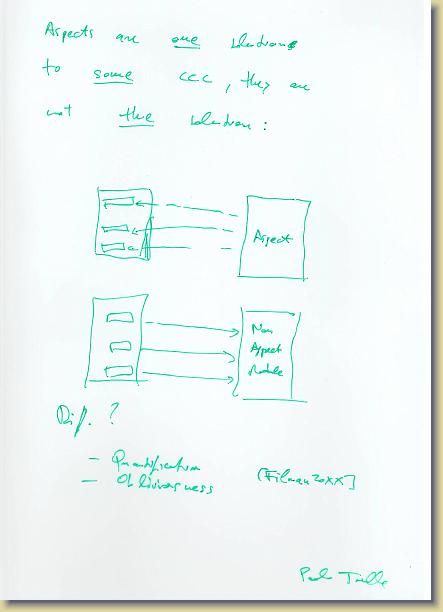 Aspects are one solution
to some CCC, they are
not the solution:
Aspect
Non
Aspect
Module
Dif. ?
- Quantification
- Obliviousness [Filman 20XX]